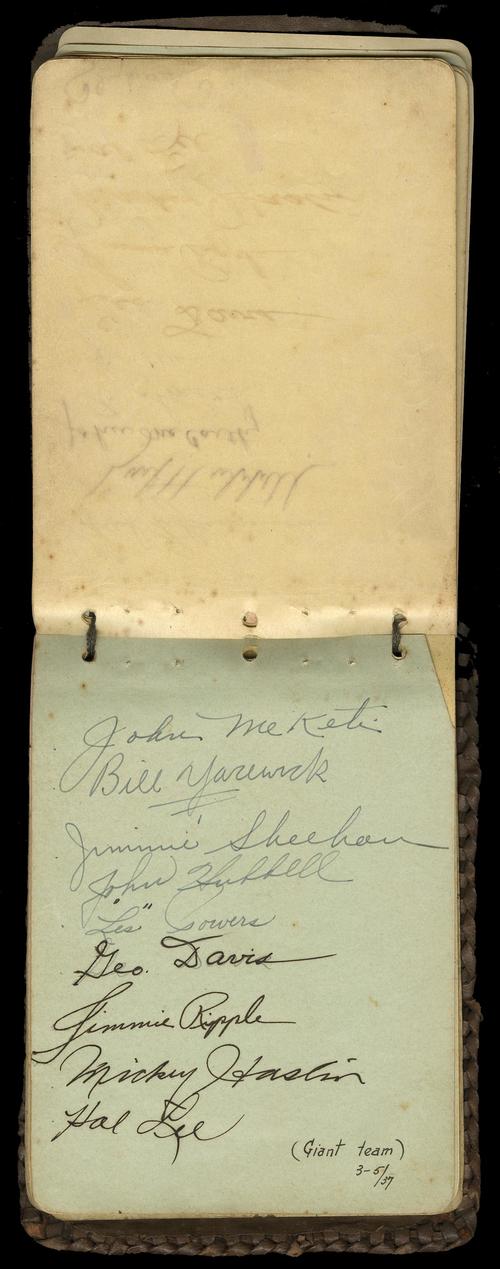 John McKeti
Bill Yarewick
Jimmie Sheehan
John Hubbell
"Les" Powers
Geo. Davis
Jimmie Ripple
Mickey Haslin
Hal Lee
(Giant team)
3-5/37